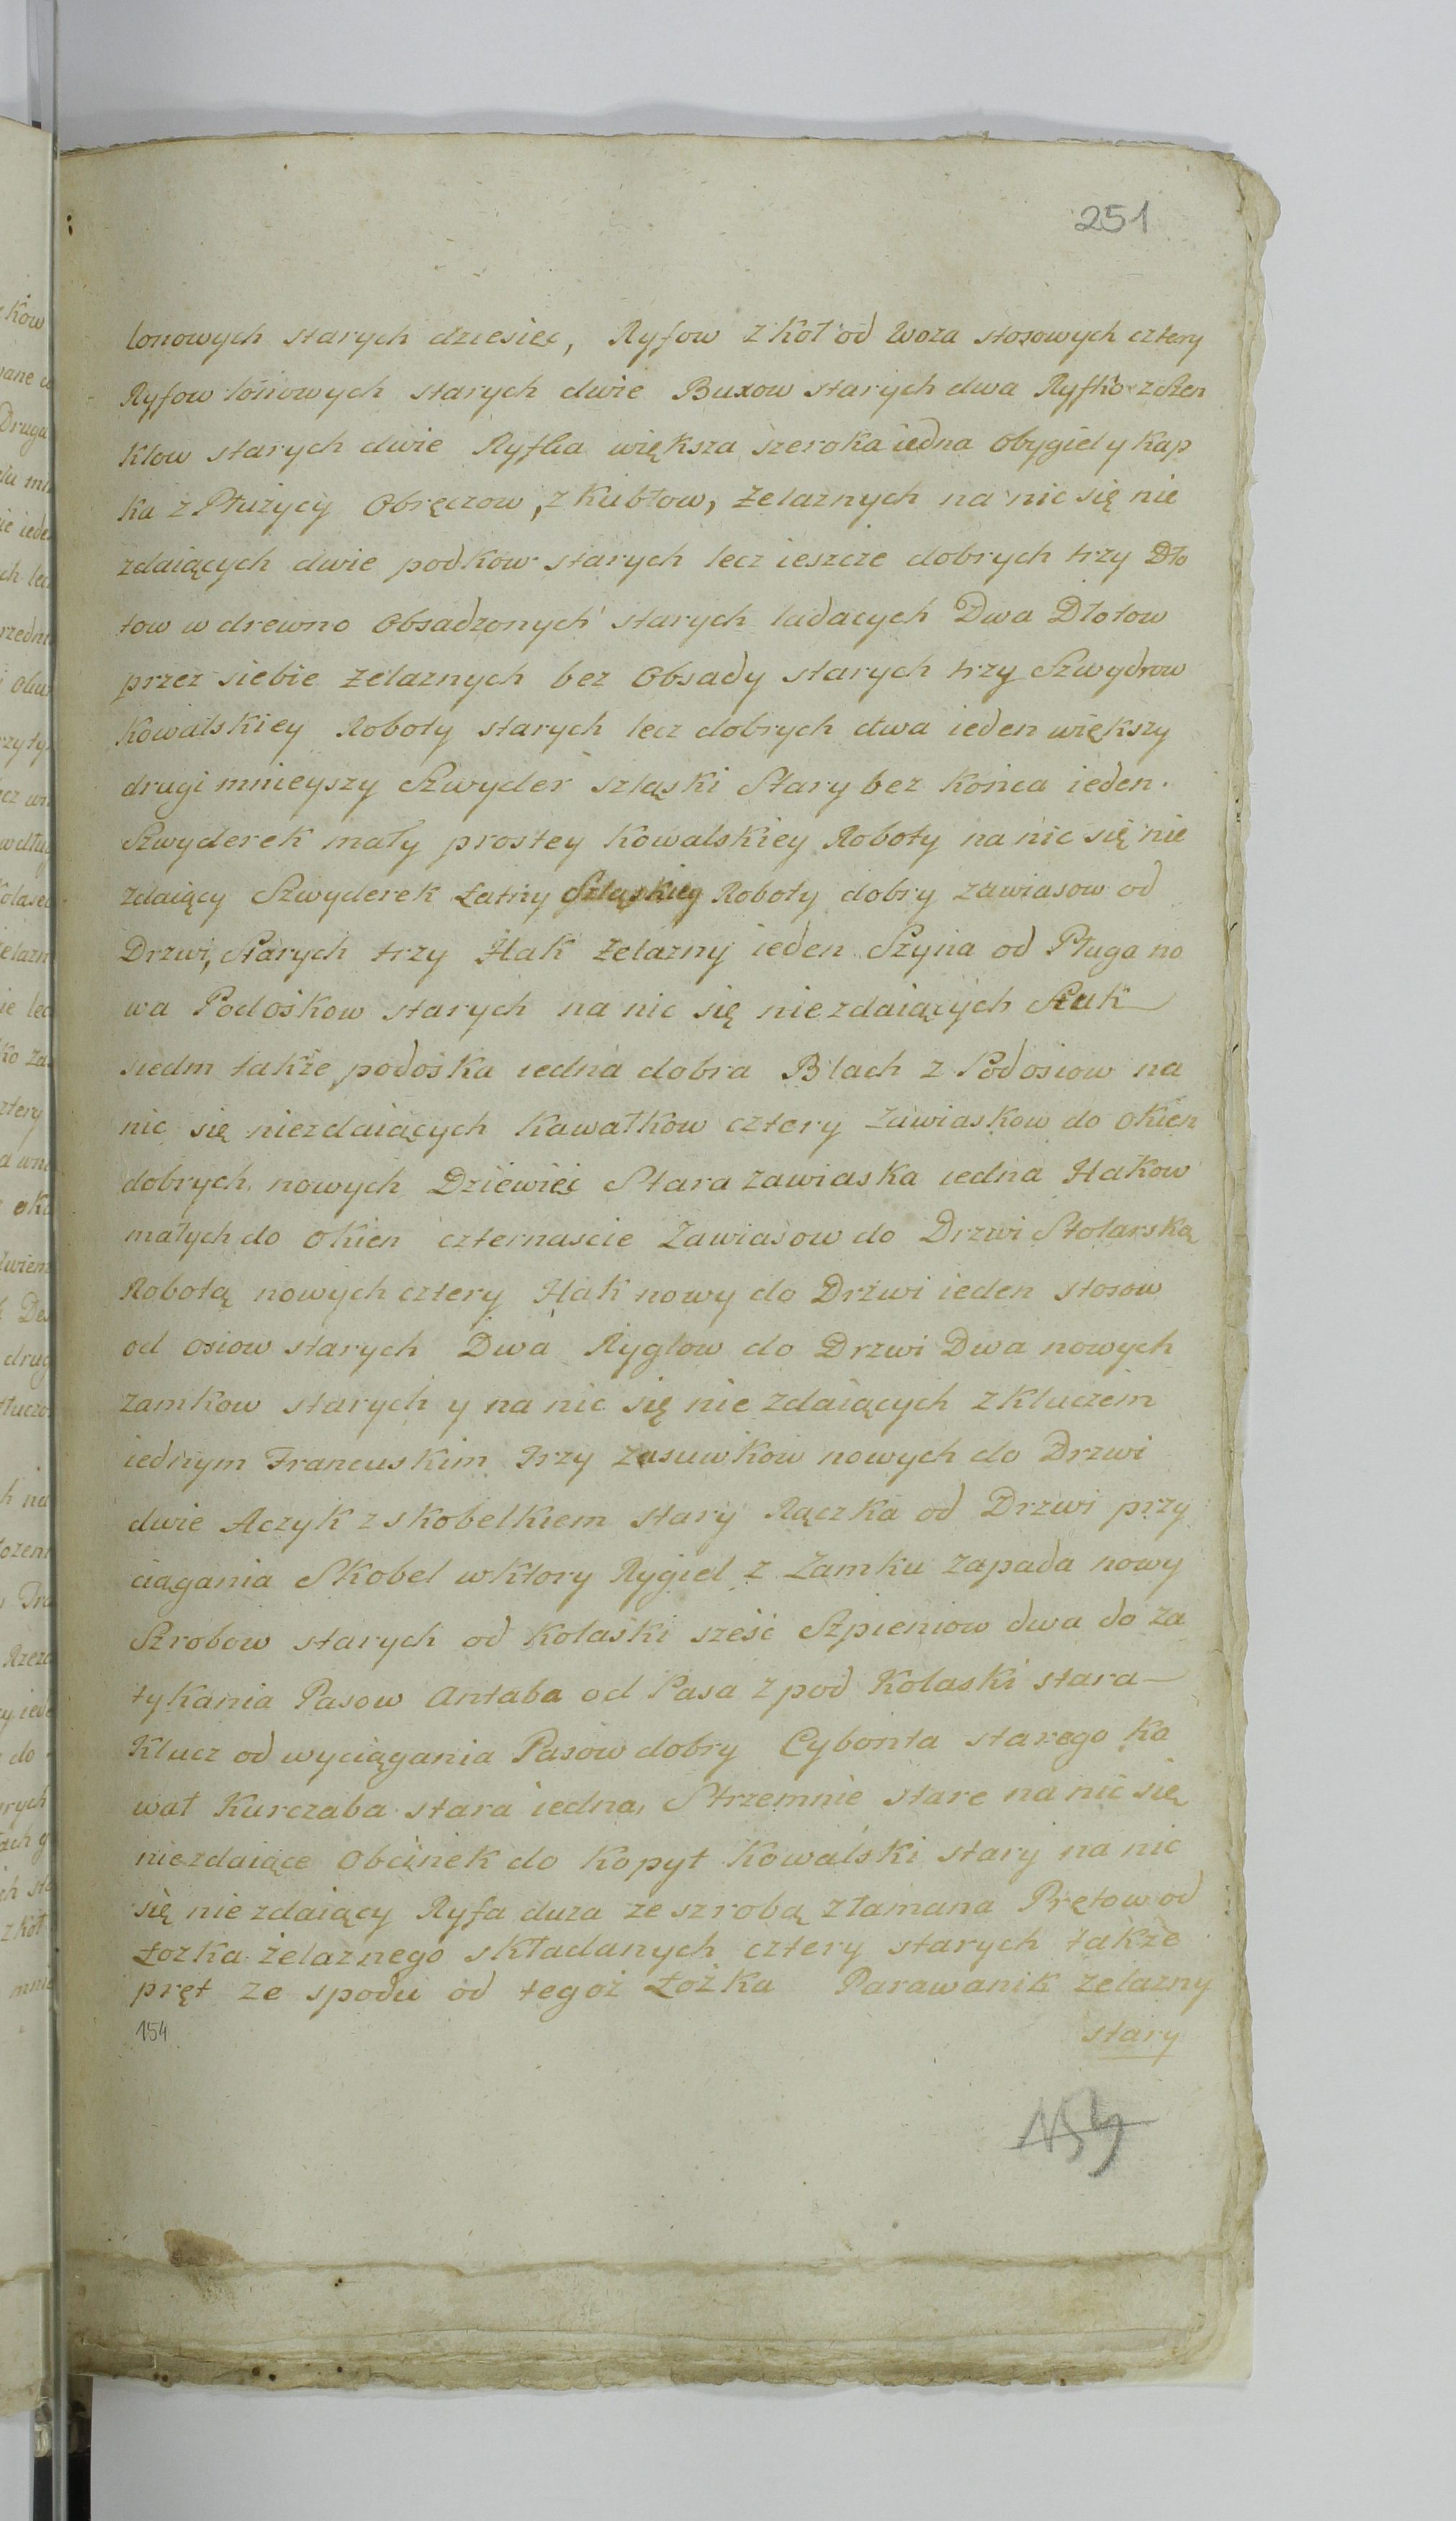 251
lonowych starych dziesięc, Ryfow z Koł od Woza stosowych cztery
Ryfow lonowych starych dwie Buxow starych dwa Ryfko
Klow starych dwie Ryfka większa szeroka iedna Kap
ka z Płużycy Obręczow, z Kubłow, Żelaznych na nic się nie
zdaiących dwie podkow starych lecz ieszcze dobrych trzy Dło
tow w drewno Obsadzonych starych ladacych Dwa Dłotow
przez siebie Żelaznych bez Obsady starych trzy Szwydrow
Kowalskiey Roboty starych lecz dobrych dwa ieden większy
drugi mnieyszy Szwyder szląski Stary bez Końca ieden.
Szwyderek mały prostey Kowalskiey Roboty na nic się nie
zdaiący Szwyderek Łatny Szląskiey Roboty dobry zawiasow od
Drzwi, Starych trzy Hak Żelazny ieden Szyna od Pługa no
wa Podoskow starych na nic się niezdaiących Sztuk
siedm także podoska iedna dobra Blach z Podosiow na
nic się niezdaiących Kawałkow cztery Zawiaskow do okien
dobrych nowych Dziewięć Stara zawiaska iedna Hakow
małych do okien czternascie Zawiasow do Drzwi Stolarską
Robotą nowych cztery Hak nowy do Drzwi ieden stosow
od osiow starych Dwa Ryglow do Drzwi Dwa nowych
zamkow starych y na nic się nie zdaiących z kluczem
iednym Francuskim Trzy zasuwkow nowych do Drzwi
dwie Aczyk z skobelkiem stary Rączka od Drzwi przy
ciągania Skobel w ktory Rygiel z Zamku zapada nowy
Szrobow starych od Kolaski sześć Szpieniow dwa do za
tykania Pasow Antaba od Pasa z pod Kolaski stara
Klucz od wyciągania Pasow dobry Cybonta starego ka
wał Kurczaba stara iedna, Strzemnie stare na nic się
niezdaiące Obcinek do Kopyt Kowalski stary na nic
się nie zdaiący Ryfa duza ze szrobą złamana Prętow od
Łozka żelaznego składanych cztery starych także
pręt ze spodu od tegoż Łożka Parawanik żelazny
154 stary
154